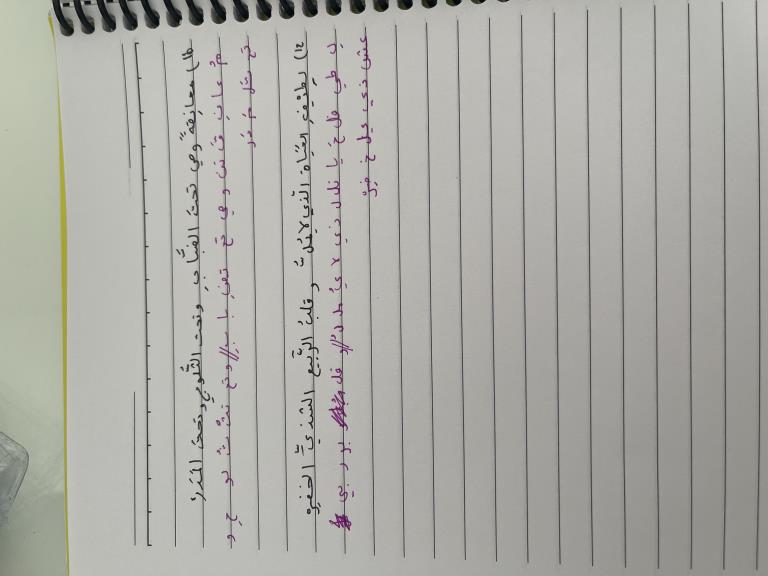 معانقةً وهي تحتَ الضَّبابِ وتحتَ الثّلوجِ وتحتَ المَدَرْ
مُ عا نِ قَ تن و هي تح تض ض با بـ // و تح تث ث لو ج و
تح تل مَ دَر
١٢) لِطَيْفِ الحَيَاةِ الّذي لا يُمَلُّ و قلبِ الرّبيعِ الشذيِّ الخَضِرْ
لِ طي فل ح يا تل ل ذي لا يُ مل لُ // و قل بر ر بي
عش ش ذي يل خ ضِرْ